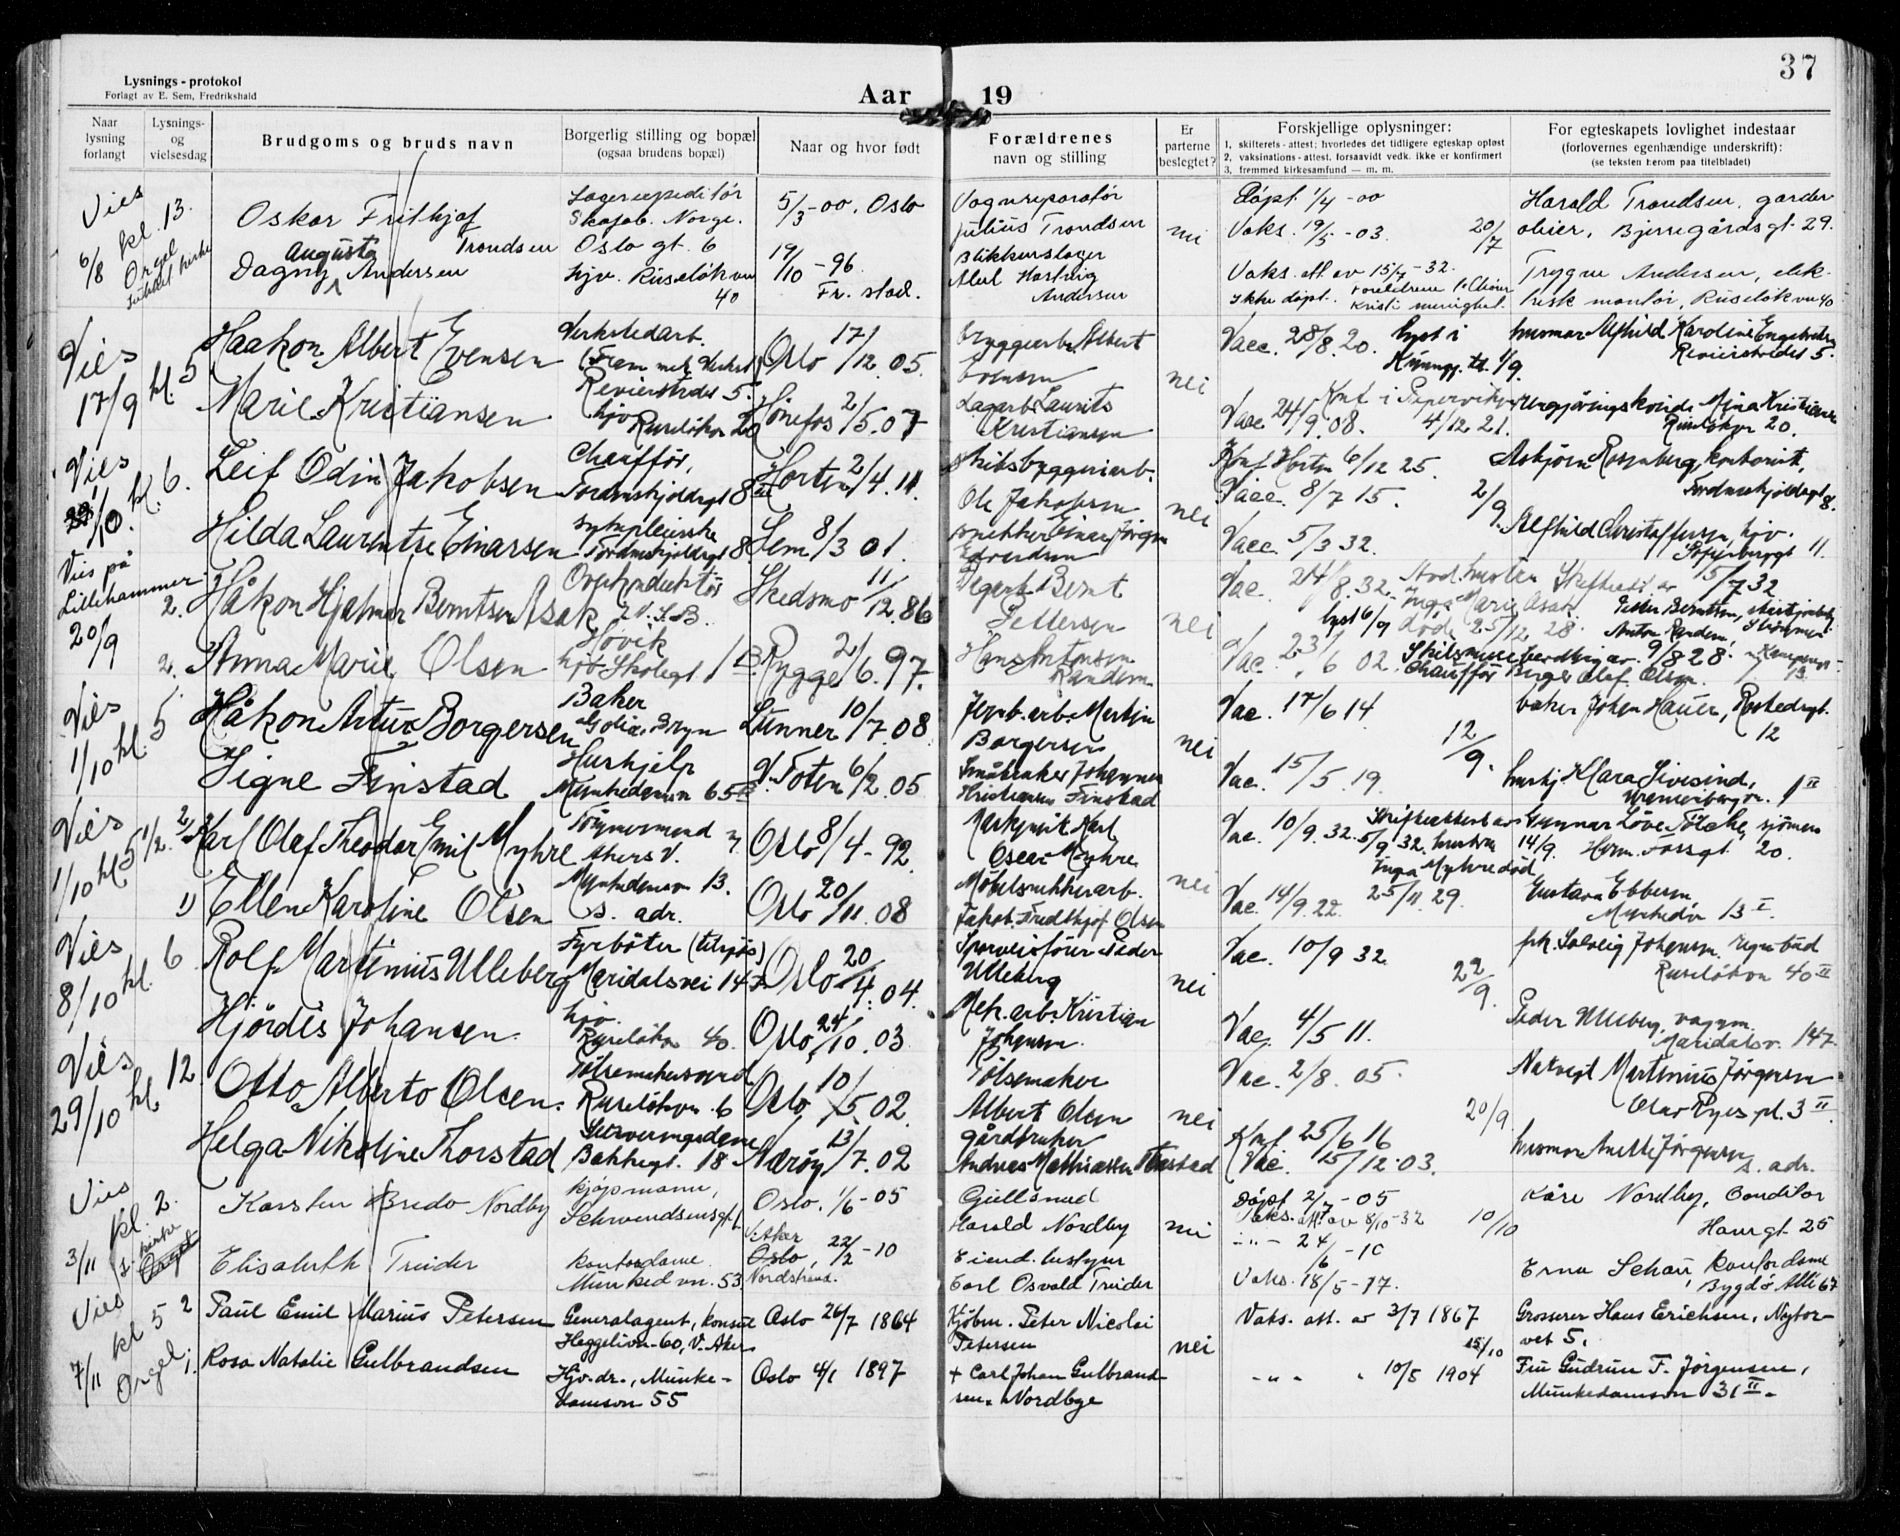 37
Lysnings-protokol
Forlagt av E. Sem, Fredrikshald
Aar 19
Naar lysning forlangt
Lysnings- og vielsesdag
Brudgoms og bruds navn
Borgerlig stilling og bopæl
(ogsaa brudens bopæl)
Naar og hvor født
Forældrenes
navn og stilling
Er parterne beslegtet?
Forskjellige oplysninger:
1, skifterets-attest; hvorledes det tidligere egteskap opløst
2, vaksinations-attest, forsaavidt vedk. ikke er konfirmert
3, fremmed kirkesamfund — m. m.
For egteskapets lovlighet indestaar
(forlovernes egenhændige underskrift):
(se teksten herom paa titelbladet)
Vies
6/8 kl. 13.
Orgel
Oskar Frithjof
Trondsen
Oslo gt. 6
5/3-00, Oslo
Vognreparatør
Julius Trondsen
nei
Døpt 1/4-00
Vaks. 19/5-03.
20/7
Harald Trondsen, garder
obier, Bjerregårdsgt. 29.
Augusta
Dagny Andersen
hjv. Ruseløkvn
40
19/10-96.
Fr. stad.
Blikkenslager
Abel Hartvig
Andersen
Vaks. att. av 15/7-32.
Ikke døpt.
Trygve Andersen, elek-
trisk montør, Ruseløkvn 40
Vies
17/9 kl. 5
Haakon Albert Evensen
Verkstedarb.
Revierstrds 5.
Oslo 17/12.05.
Bryggearb. Albert
Evensen
nei
Vacc. 28/8.20. lyst i
Kunngj. td. 1/9.
husmor Alfhild Karoline
Revierstrdes 5.
Marie Kristiansen
hjv
Ruseløkvn 20
Hønefos 2/5.07
Lagarb. Laurits
Kristiansen
Vacc 24/9.08.
4/12 21.
Rengjøringskvinde Mina Kristiansen
Ruseløkvn 20.
Vies
1/10. kl. 6.
Leif Odin Jakobsen
Chauffør,
Tordenskjoldsgt 8
Horten 2/4.11.
Skibsbyggeriarb.
Ole Jakobsen
nei
Konf Horten 6/12 25.
Vacc. 8/7 15.
2/9.
Asbjørn Rosenberg, kontorist,
Tordenskjoldsgt 8.
Hilda Laurentse Einarsen
sypleierske
Tordenskjoldsgt 8.
Sem 8/3 01.
snekker Einar Jørgen
Edvardsen
Vacc 5/3 32.
Alfhild Christoffersen, hjv.
Sofienberggt 11.
Vies på
Lillehammer
20/9
2.
Håkon Hjalmar Berntsen Asak
Overkonduktør
Høvik
Skedsmo 11/12.86
Bernt
Pettersen
nei
Vac. 24/8.32.
Inga Marie Asak
lyst 6/9 død 25/12 28.
Skifteatt. av 15/7 32
Petter Berntsen,
Strømmen
2.
Anna Marie Olsen
hjv Skolegt 13.
Rygge 2/6.97.
Hans Antonsen
Randem
Vac. 23/6 02.
Skilsmissebevilling av 9/8 28.
Chauffør Birger Olaf Olsen.
Anton Randem,
13.
Vies
1/10 kl. 5
Håkon Artur Borgersen
Baker
Bryn
Lunner 10/7.08.
Jernb. arb. Martin
Borgersen
nei
Vac. 17/6 14
12/9.
baker Johan Hauer,
12
Signe Finstad
Hushjelp
Munkedamsvn 65
V. Toten 6/2.05
Småbruker Johannes
Kristiansen Finstad
Vac. 15/5.19.
hushj. Klara Sivesind,
1 II
Vies
1/10 kl 5 1/2.
2
Karl Olaf Theodor Emil Myhre
Tømmermand
Akers v. 7
Oslo 8/4-92.
Karl
Oscar Myhre
nei
Vac. 10/9.32. Skifteattest av
5/9 32. hustru
Inga Myhre død
25/11 29.
Gunnar Løve sjømen
14/9. Herm. Fossgt. 20.
Ellen Karoline Olsen
Munkedamsvn 13.
s. adr.
Oslo 20/11 08
Møbelsnekkerarb.
Jakob Fredthjof Olsen
Vac 14/9. 22.
Gustava Ebbesen
Munkedv 13 I.
Vies
8/10 kl. 6
Rolf Martinius Ulleberg
Fyrbøter (tilsjøs)
Maridalsvei 147
Oslo 20/4.04.
Sporveisfører Peder
Ulleberg
nei
Vac. 10/9 32.
22/9.
frk. Solveig Johansen,
Ruseløkvn 40 II
Hjørdis Johansen.
hjv.
Ruseløkvn 40.
Oslo, 24/10.03
Mek. arb. Kristian
Johansen.
Vac. 4/5 11.
Peder Ulleberg, vognm.
Maridalsv. 147.
Vies
29/10 kl. 12.
Otto Alberto Olsen.
Pølsemakersvend
Ruseløkvn. 6
Oslo 10/5.02.
Pølsemaker
Albert Olsen
nei
Vac. 2/8. 05.
20/9
Nakvegt Martinius Jørgensen
Olav Ryes pl. 3 II.
Helga Nikoline Thorstad
Serveringsdame
Bakkegt. 18
Nærøy 13/7.02
gårdbruker
Andreas Mathiassen Thorstad
Konf. 25/6 16
Vac. 15/12.03.
husmor Anette Jørgensen
s. adr.
Vies
3/11 kl. 2.
Karsten Bredo Nordby
kjøpmann,
Schwendsensgt.
Oslo. 1/6-05
Gullsmed
Harald Nordby
nei
Døpt 2/7-05
Vaks. att. av 8/10-32
10/10
Kåre Nordby, Conditor
Havregt 25
Elisabeth Treider
kontordame
Munked vn. 53
V. Aker
Oslo, 22/2-10
Nordstrand.
Eiend. bestyrer
Carl Osvald Treider
-"- 24/6-10
Vaks. 18/5-17.
Erna Schau, Kontordame
Bygdø Allé 67
Vies
7/11 kl 5
Orgel
2
Paul Emil Marius Petersen
Generalagent, konsul
Heggelivn-60, V. Aker
Oslo 26/7 1864
Kjøbm. Peter Nicolai
Petersen
nei
Vaks. att. av 3/7 1867
15/10
Grosserer Hans Erichsen, Nytor-
vet 5.
Rosa Natalie Gulbrandsen
Hjv.dr., Munke-
damsvn 55
Oslo 4/1 1897
+ Carl Johan Gulbrand-
sen. Nordbye
-"- " 10/5 1904
Fru Gudrun F. Jørgensen,
Munkedamsvn 31 II.